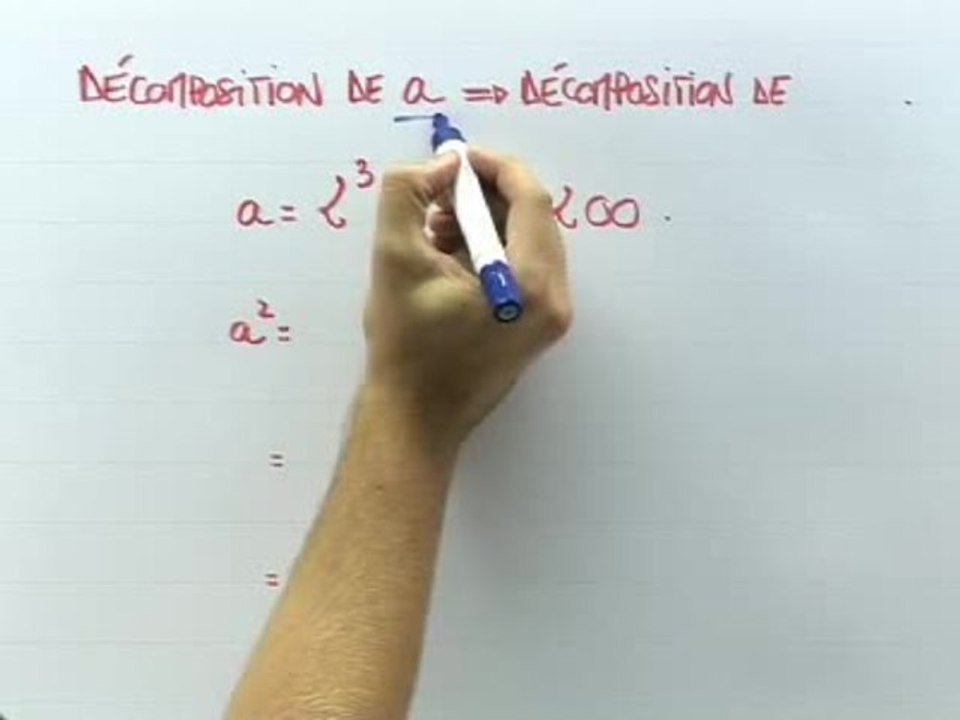 DÉCOMPOSITION DE a ⇒ DÉCOMPOSITION DE .
a = 2³ 200 .
a² =
=
=